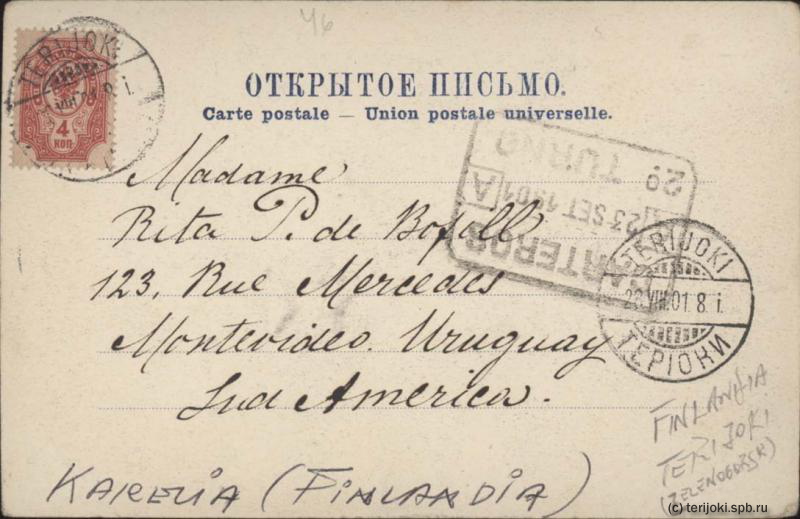 46
ОТКРЫТОЕ ПИСЬМО.
Carte postale — Union postale universelle.
TERIJOKI
4
КОП
Madame
Rita P. de Bofill
123, Rue Mercedes
Montevideo. Uruguay
Sud America.
CARTEROS
23 SET 1901 A
2º TURNO
TERIJOKI
VIII.01. 8 i.
ТЕРІОКИ
FINLANDIA
TERIJOKI
(ZELENOGORSK)
KARELIA (FINLANDIA)
(c) terijoki.spb.ru